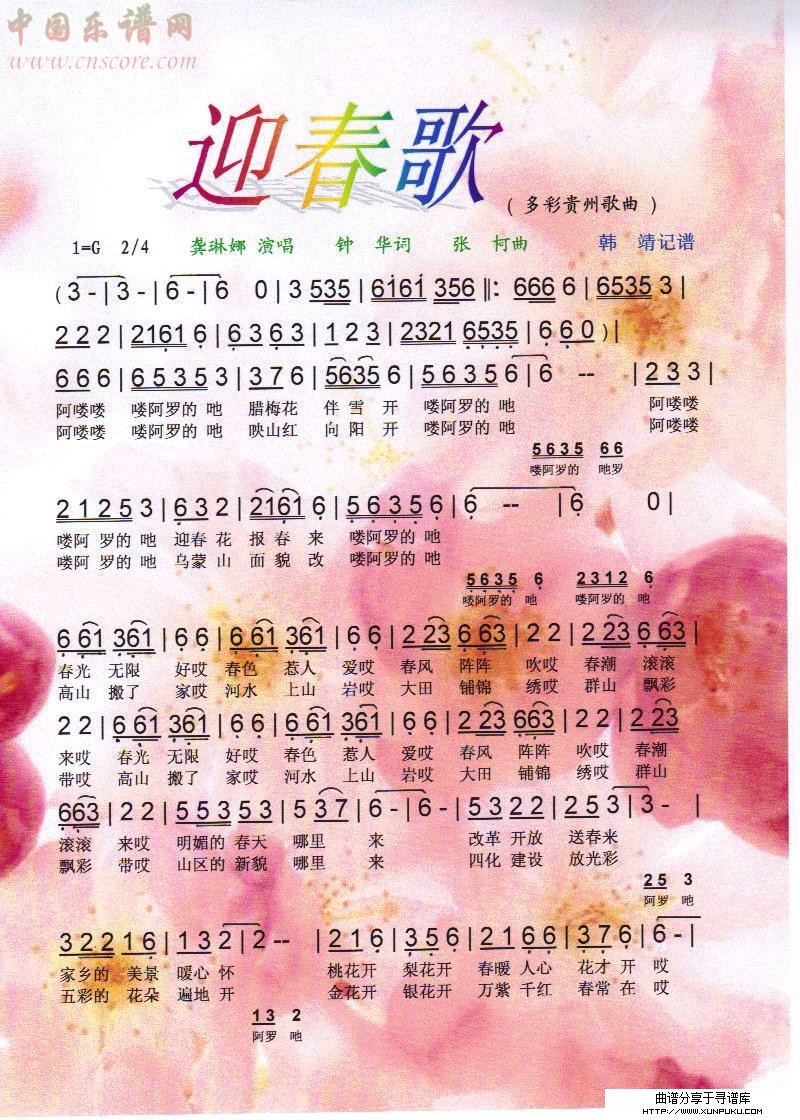 中国乐谱网
www.cnscore.com
迎春歌
( 多彩贵州歌曲 )
1=G 2/4 龚琳娜 演唱 钟 华词 张 柯曲 韩 靖记谱
( 3 - | 3 - | 6 - | 6 0 | 3 535 | 6161 356 ‖: 666 6 | 6535 3 |
2 2 2 | 2161 6 | 6 3 6 3 | 1 2 3 | 2321 6535 | 6 6 0 ) |
6 6 6 | 6 5 3 5 3 | 3 7 6 | 5635 6 | 5 6 3 5 6 | 6 -- | 2 3 3 |
阿喽喽 喽阿罗的 吔 腊梅花 伴 雪 开 喽阿罗的 吔 阿喽喽
阿喽喽 喽阿罗的 吔 映山红 向 阳 开 喽阿罗的 吔 阿喽喽
5 6 3 5 6 6
喽阿罗的 吔罗
2 1 2 5 3 | 6 3 2 | 2161 6 | 5 6 3 5 6 | 6 -- | 6 0 |
喽阿 罗的 吔 迎春 花 报 春 来 喽阿罗的 吔
喽阿 罗的 吔 乌蒙 山 面 貌 改 喽阿罗的 吔
5 6 3 5 6 2 3 1 2 6
喽阿罗的 吔 喽阿罗的 吔
6 61 361 | 6 6 | 6 61 361 | 6 6 | 2 23 6 63 | 2 2 | 2 23 6 63 |
春光 无限 好哎 春色 惹人 爱哎 春风 阵阵 吹哎 春潮 滚滚
高山 搬了 家哎 河水 上山 岩哎 大田 铺锦 绣哎 群山 飘彩
2 2 | 6 61 361 | 6 6 | 6 61 361 | 6 6 | 2 23 663 | 2 2 | 2 23
来哎 春光 无限 好哎 春色 惹人 爱哎 春风 阵阵 吹哎 春潮
带哎 高山 搬了 家哎 河水 上山 岩哎 大田 铺锦 绣哎 群山
663 | 2 2 | 5 5 3 5 3 | 5 3 7 | 6 - | 6 - | 5 3 2 2 | 2 5 3 | 3 - |
滚滚 来哎 明媚的 春天 哪里 来 改革 开放 送春来
飘彩 带哎 山区的 新貌 哪里 来 四化 建设 放光彩
2 5 3
阿罗 吔
3 2 2 1 6 | 1 3 2 | 2 -- | 2 1 6 | 3 5 6 | 2 1 6 6 | 3 7 6 | 6 - |
家乡的 美景 暖心 怀 桃花开 梨花开 春暖 人心 花才 开 哎
五彩的 花朵 遍地 开 金花开 银花开 万紫 千红 春常 在 哎
1 3 2
阿罗 吔
曲谱分享于寻谱库
WWW.XUNPUKU.COM